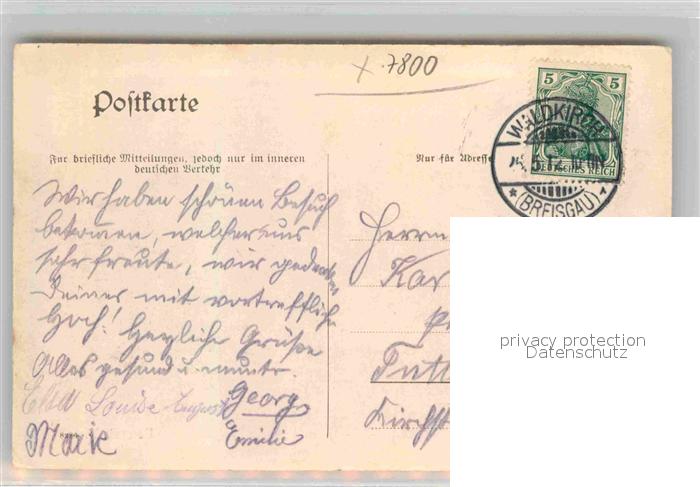 x 7800
Postkarte
5 5
DEUTSCHES REICH
WALDKIRCH
5.12.
* (BREISGAU) *
Für briefliche Mitteilungen, jedoch nur im inneren
deutschen Verkehr
Nur für Adresse
Wir haben schönen Besuch
bekommen, welcher uns
sehr freute, wir gedenken
Deiner mit vortreffliche
Hoch! Herzliche Grüße
Alles gesund u. munter.
Elsa Louise Georg
Marie Emilie
Herrn
Kar
Tutt
Kirchst
privacy protection
Datenschutz